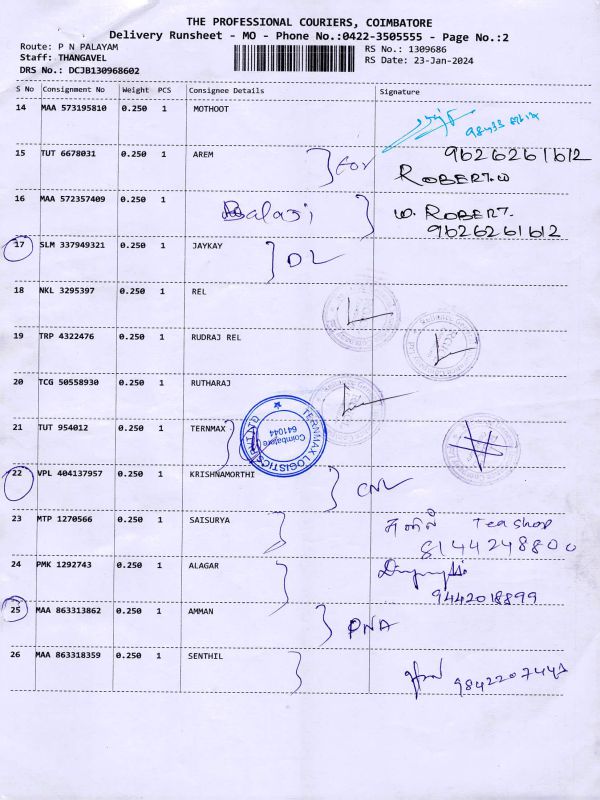 THE PROFESSIONAL COURIERS, COIMBATORE
Delivery Runsheet - MO - Phone No.:0422-3505555 - Page No.:2
Route: P N PALAYAM
RS No.: 1309686
Staff: THANGAVEL
RS Date: 23-Jan-2024
DRS No.: DCJB130968602
S No Consignment No Weight PCS Consignee Details Signature
14 MAA 573195810 0.250 1 MOTHOOT
15 TUT 6678031 0.250 1 AREM 9626261612
ROBERT.W
16 MAA 572357409 0.250 1 Balaji W. ROBERT.
9626261612
17 SLM 337949321 0.250 1 JAYKAY DL
18 NKL 3295397 0.250 1 REL
19 TRP 4322476 0.250 1 RUDRAJ REL
20 TCG 50558930 0.250 1 RUTHARAJ
21 TUT 954012 0.250 1 TERNMAX
TERNMAX LOGISTICS
Coimbatore
641044
22 VPL 404137957 0.250 1 KRISHNAMORTHI CNL
23 MTP 1270566 0.250 1 SAISURYA Tea shop
8144248800
24 PMK 1292743 0.250 1 ALAGAR
9442018899
25 MAA 863313862 0.250 1 AMMAN PNA
26 MAA 863318359 0.250 1 SENTHIL